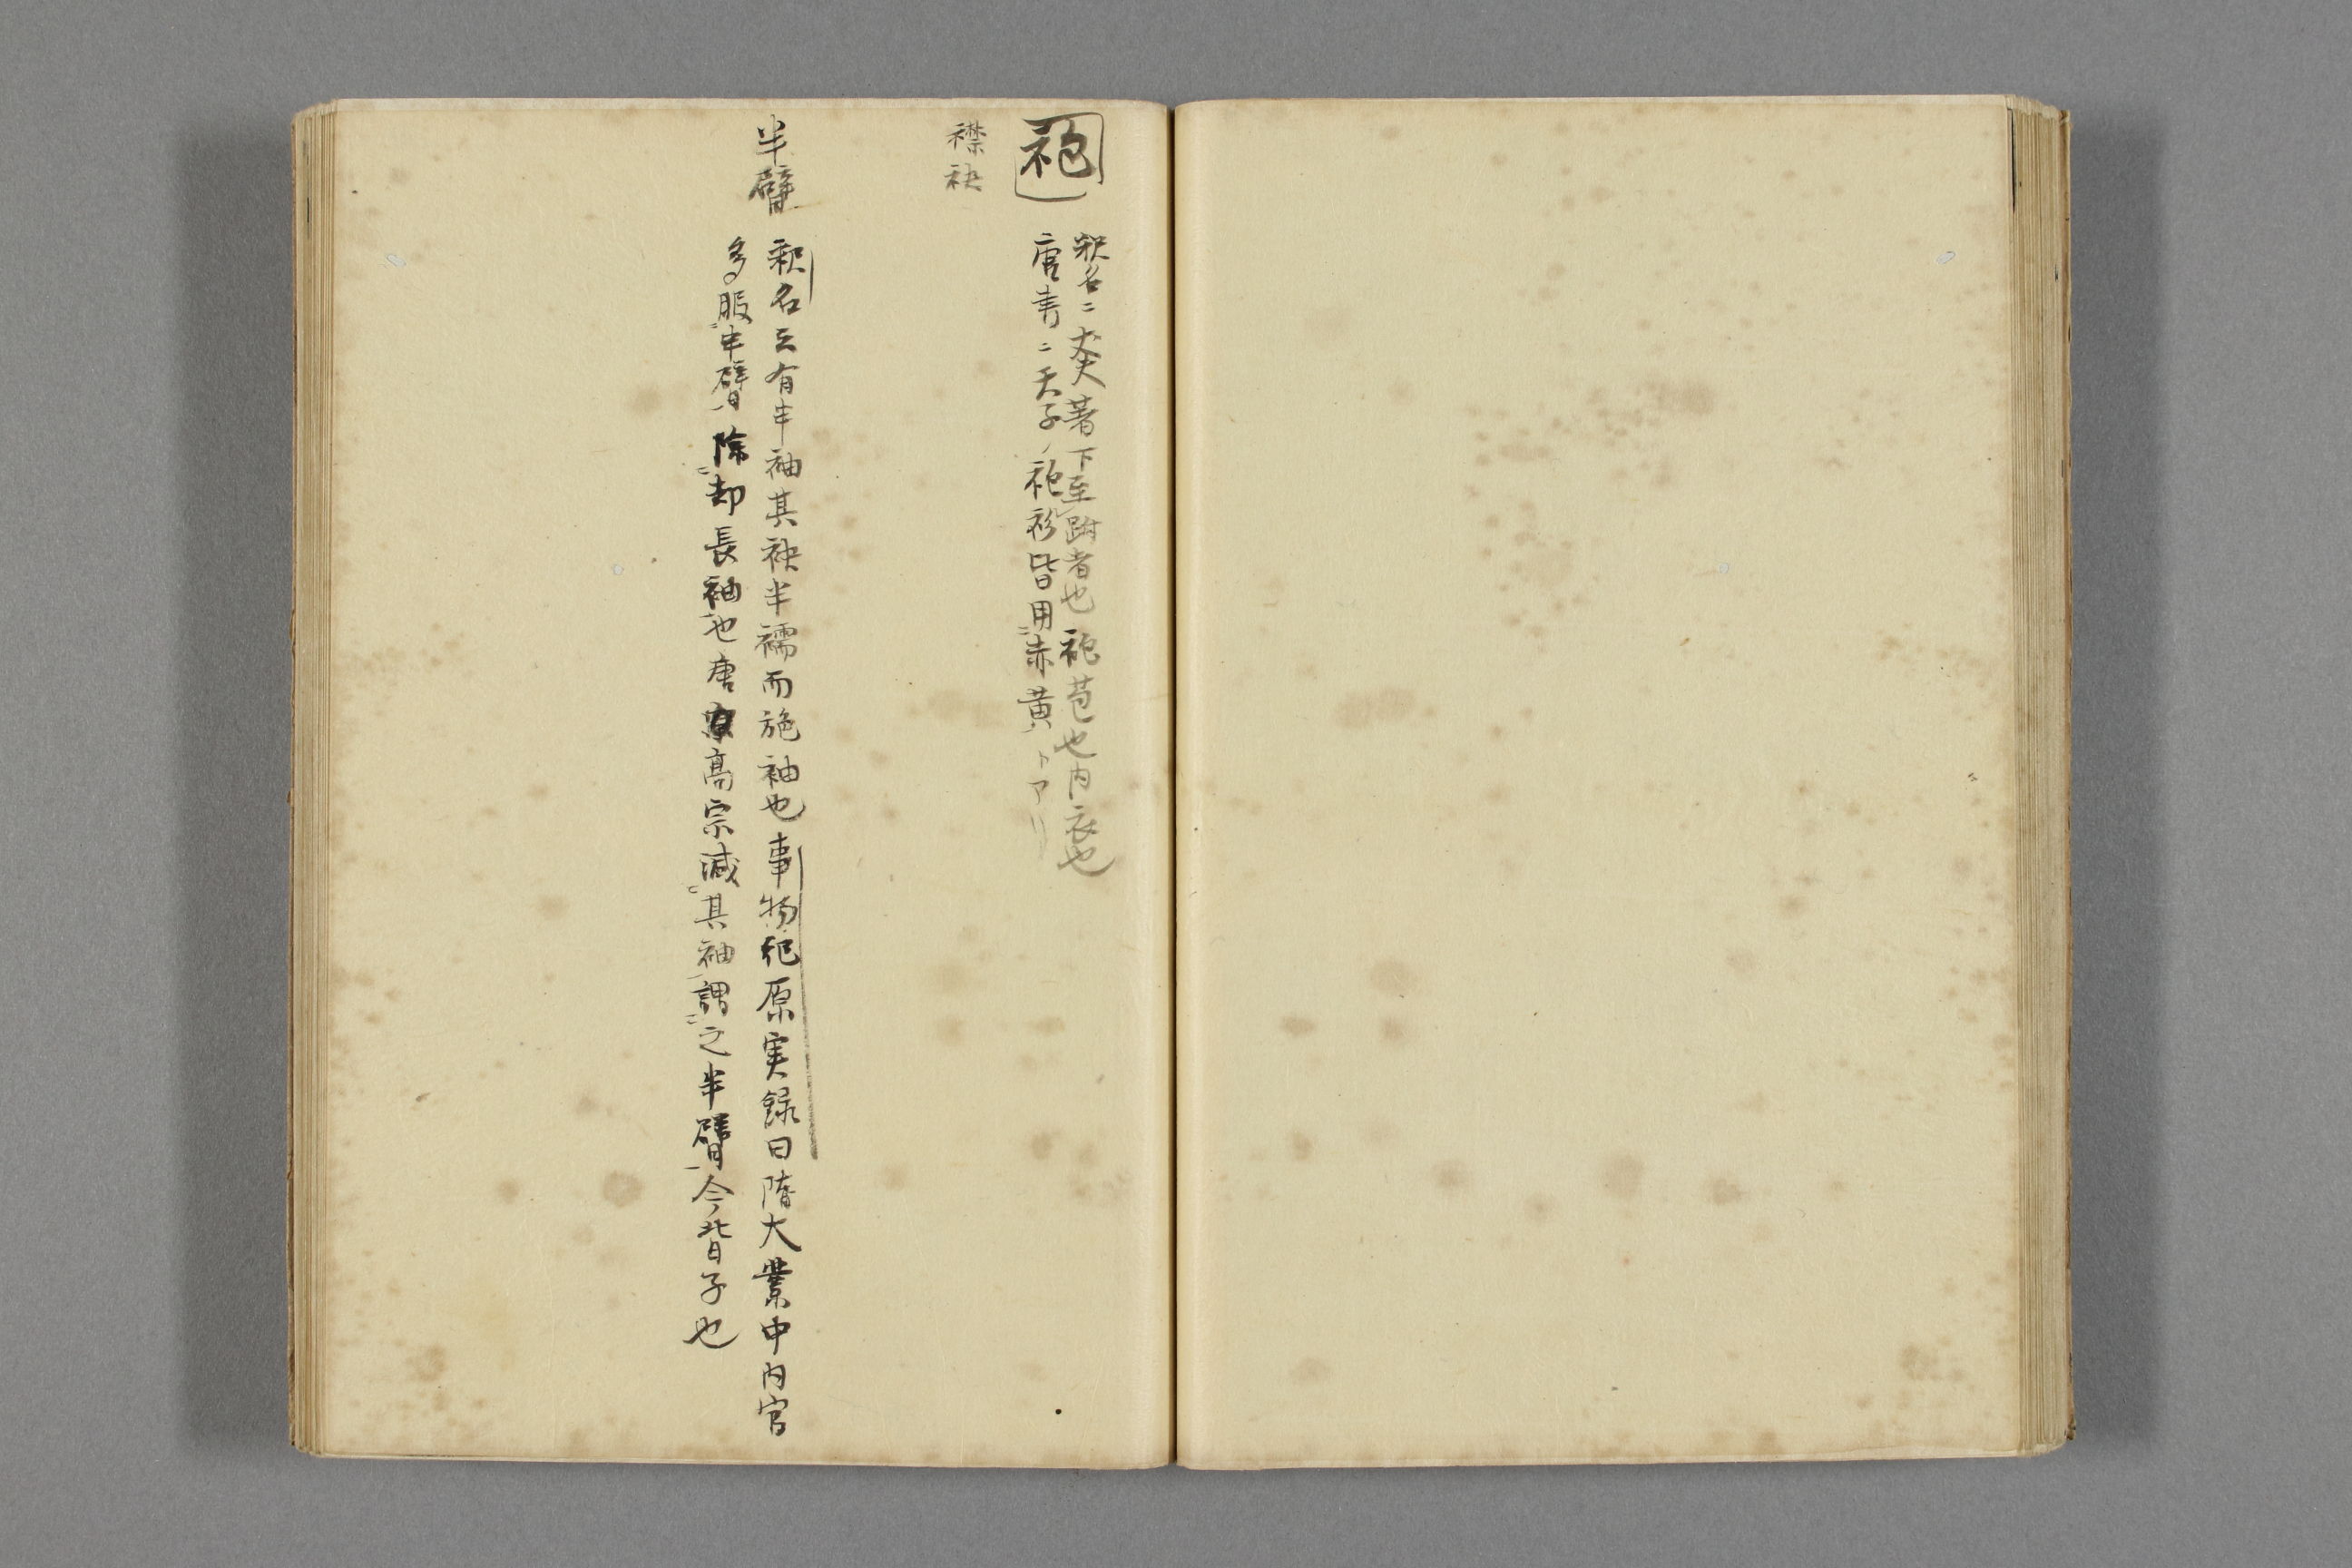 袍
釈名ニ丈夫著下至跗者也袍苞也内衣也
唐書ニ天子ノ袍衫皆用ニ赤黄トアリ
襟袂
半臂
釈名云有半袖其袂半襦而施袖也事物紀原実録曰隋大業中内官
多服ニ半臂一除ニ却長袖一也唐高宗減ニ其袖一謂ニ之半臂一今背子也